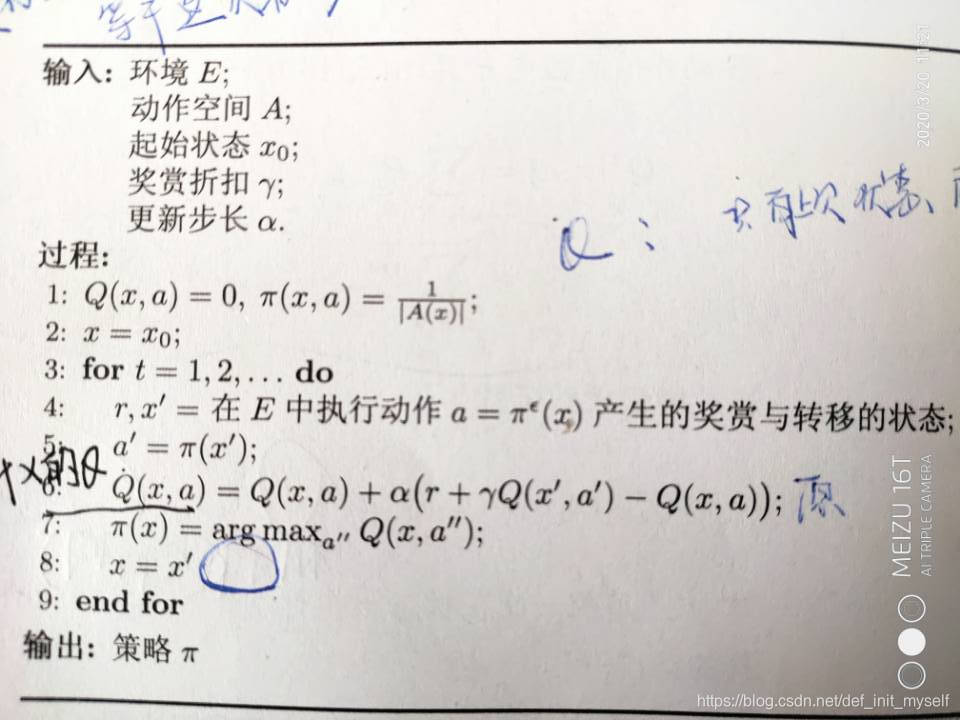 输入: 环境 E;
动作空间 A;
起始状态 x₀;
奖赏折扣 γ;
更新步长 α.
Q: 只有上次状态、
过程:
1: Q(x, a) = 0, π(x, a) = 1/|A(x)|;
2: x = x₀;
3: for t = 1, 2, ... do
4: r, x′ = 在 E 中执行动作 a = π^ϵ(x) 产生的奖赏与转移的状态;
5: a′ = π(x′);
的Q
6: Q(x, a) = Q(x, a) + α(r + γQ(x′, a′) − Q(x, a));
7: π(x) = arg max_{a″} Q(x, a″);
8: x = x′
9: end for
输出: 策略 π
2020/3/20 11:21
MEIZU 16T
AI TRIPLE CAMERA
https://blog.csdn.net/def_init_myself